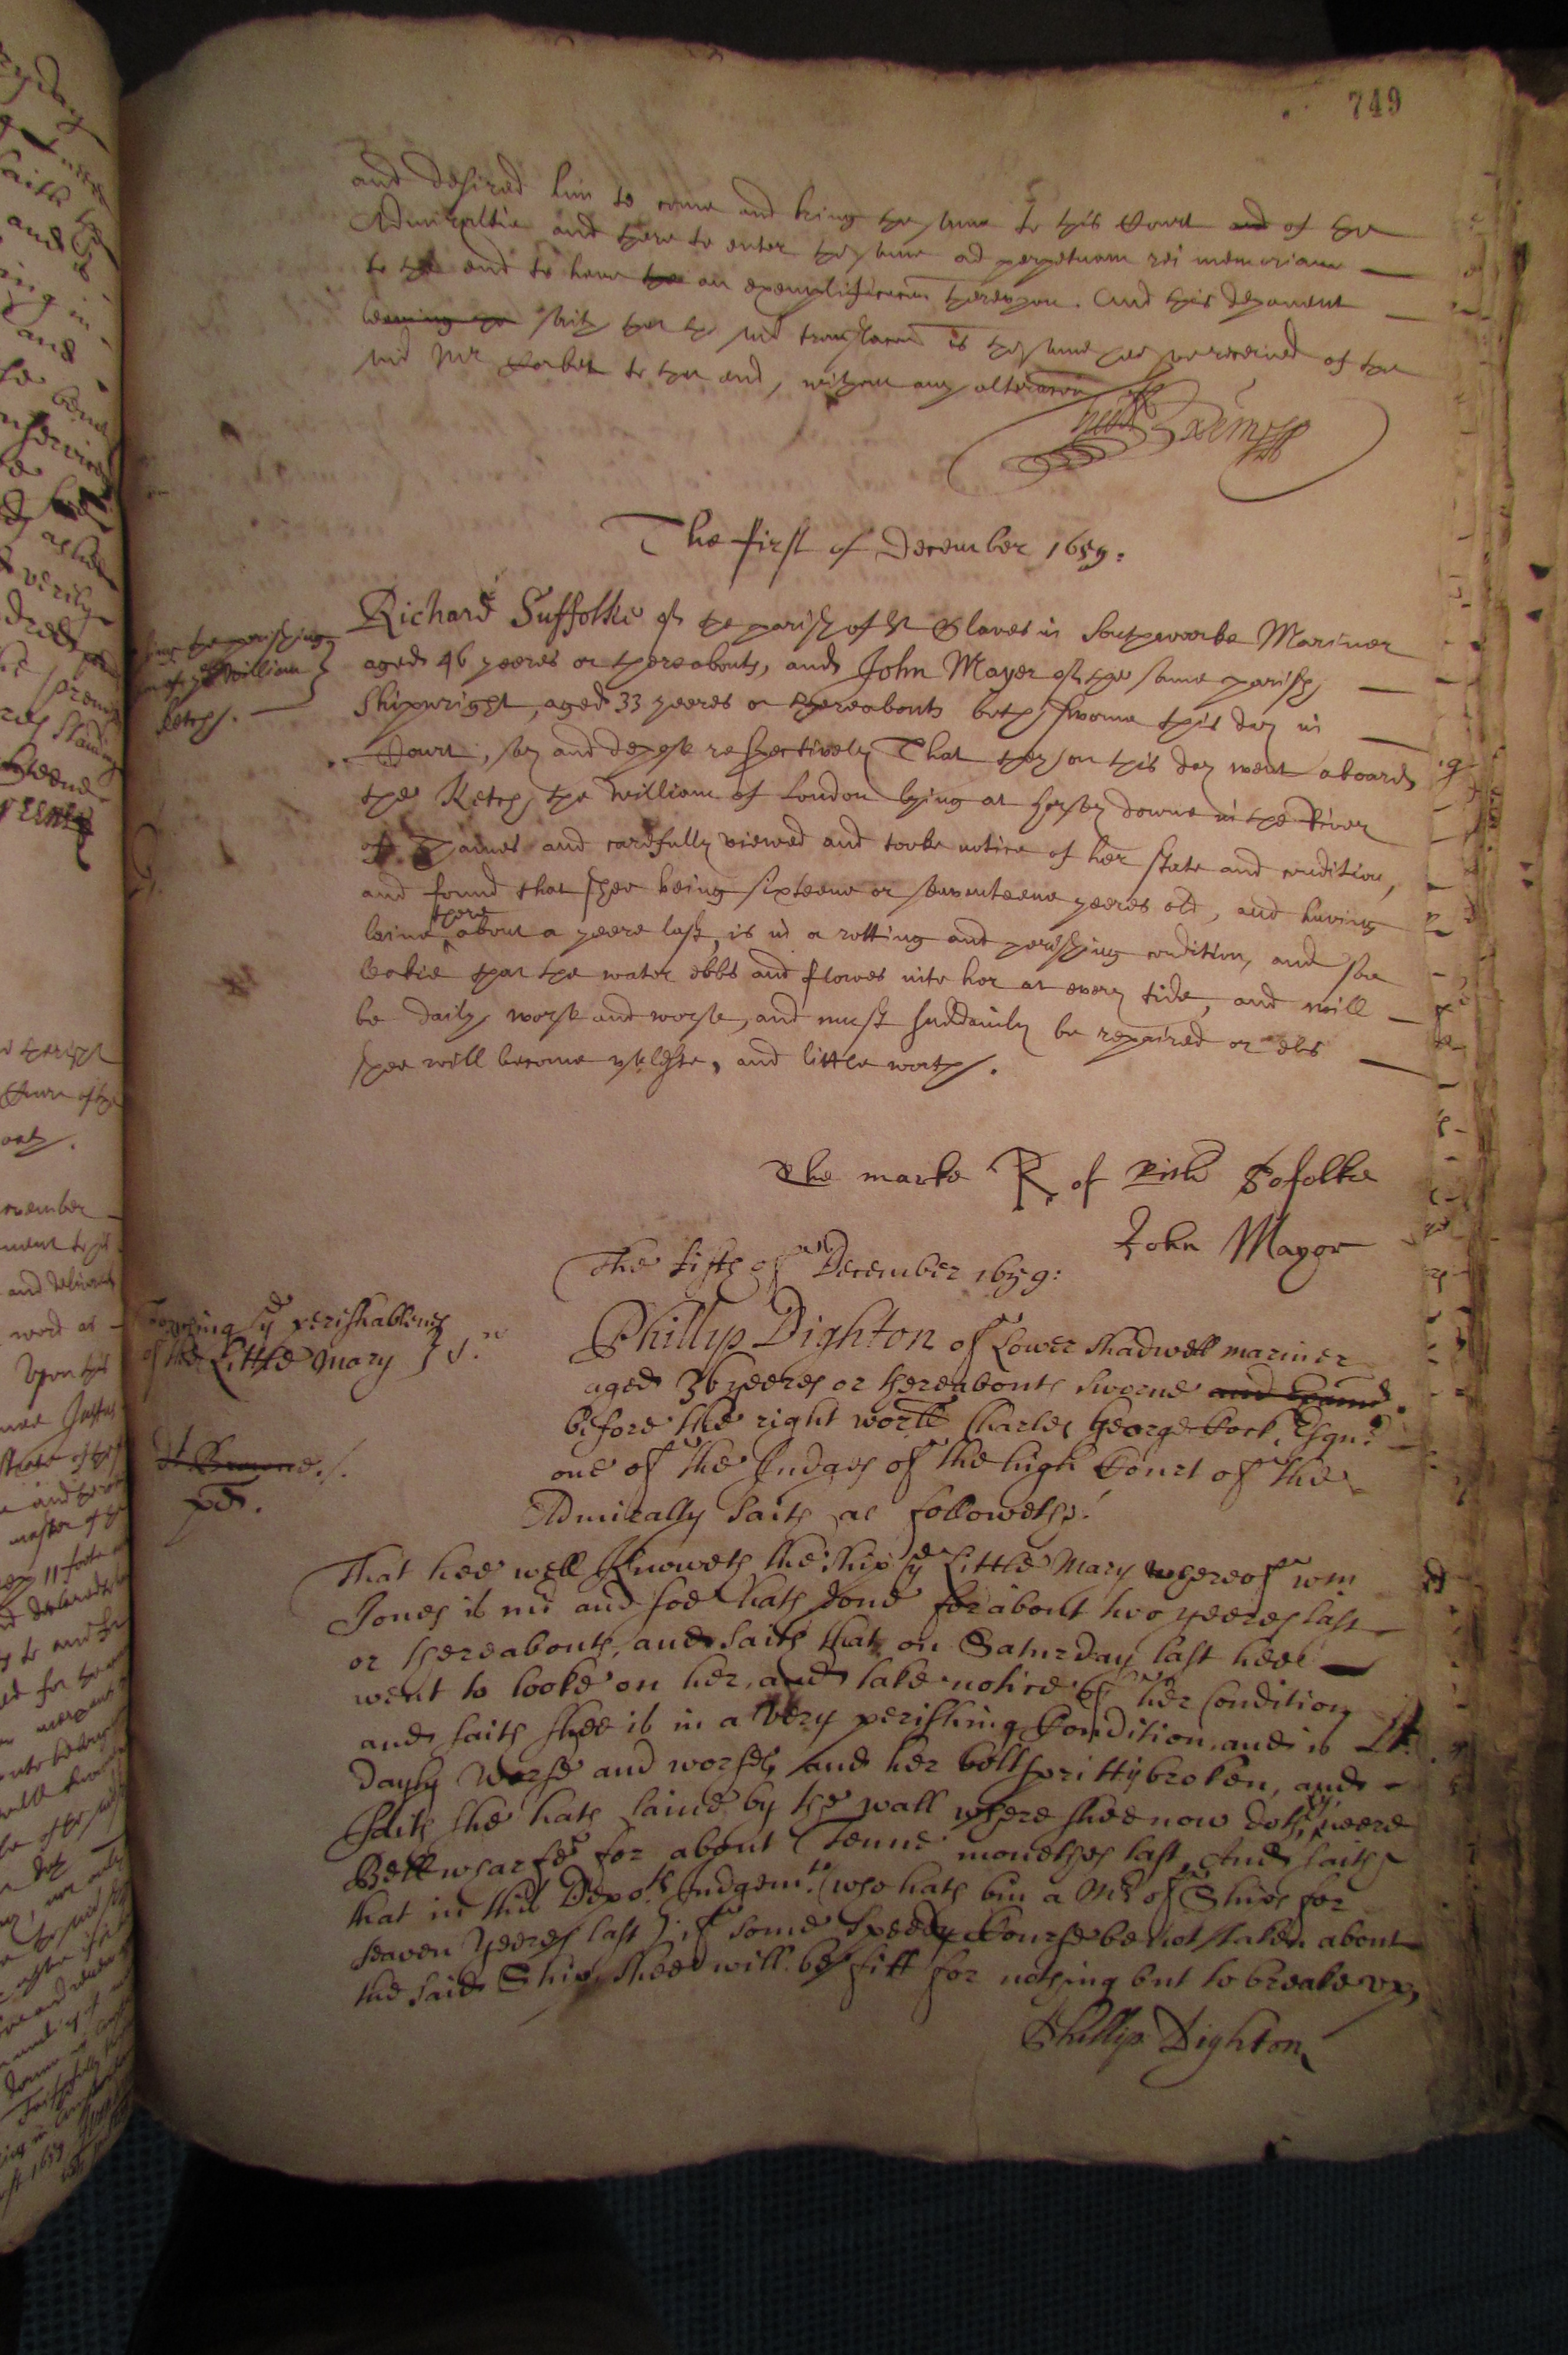 749
and desired him to come and bring the same to this Court and of the
Admiraltie and there to enter the same ad perpetuam rei memoriam
to the end to have the an exemplificacon thereupon. And this deponent
saith that the said translacon is the same hee soe received of the
said Mr Corbet to that end, without any alteracon
The first of December 1659:
touching the perishing
of the William
ketch.
Richard Suffolke of the parish of St Olaves in Southwarke Mariner
aged 46 yeeres or thereabouts, and John Mayer of the same parish
Shipwright, aged 33 yeeres or thereabouts both sworne this day in
Court, say and depose respectively That they on this day went aboard
the Ketch the William of London lying at horsey downe in the River
of Thames and carefully viewed and tooke notice of her state and condition,
and found that shee being sixteene or seventeene yeeres old, and having
laine there about a yeere last, is in a rotting and perishing condition, and soe
leakie that the water ebbs and flowes into her at every tide, and will
be daily worse and worse, and must suddainly be repaired or els
shee will become uselesse, and little worth.
The marke R of Rich Sofolke
John Mayor
The fifth of December 1659:
Touching ye perishablenes
of the Little Mary
Phillip Dighton of Lower Shadwell mariner
aged 36 yeeres or thereabouts sworne and examd
before the right worll Charles George Cock, Esqr
one of the Judges of the high Court of the
Admiralty Saith as followeth:
That hee well Knoweth the ship ye Little Mary whereof wm
Jones is mr and soe hath done for about two yeeres last
or thereabouts, and saith that on Saturday last hee
went to looke on her, and take notice of her Condition
and saith shee is in a very perishing Condition, and is
dayly worse and worse, and her boltspritt broken, and
Saith she hath laine by the wall where shee now doth, neere
Bell wharfe for about Tenne monethes last, And saith
that in this Depots Judgemt (who hath bin a Mr of Ships for
seaven yeeres last) if some speedy Course be not taken about
the said Ship, shee will be fitt for nothing but to breake up,
Phillip Dighton